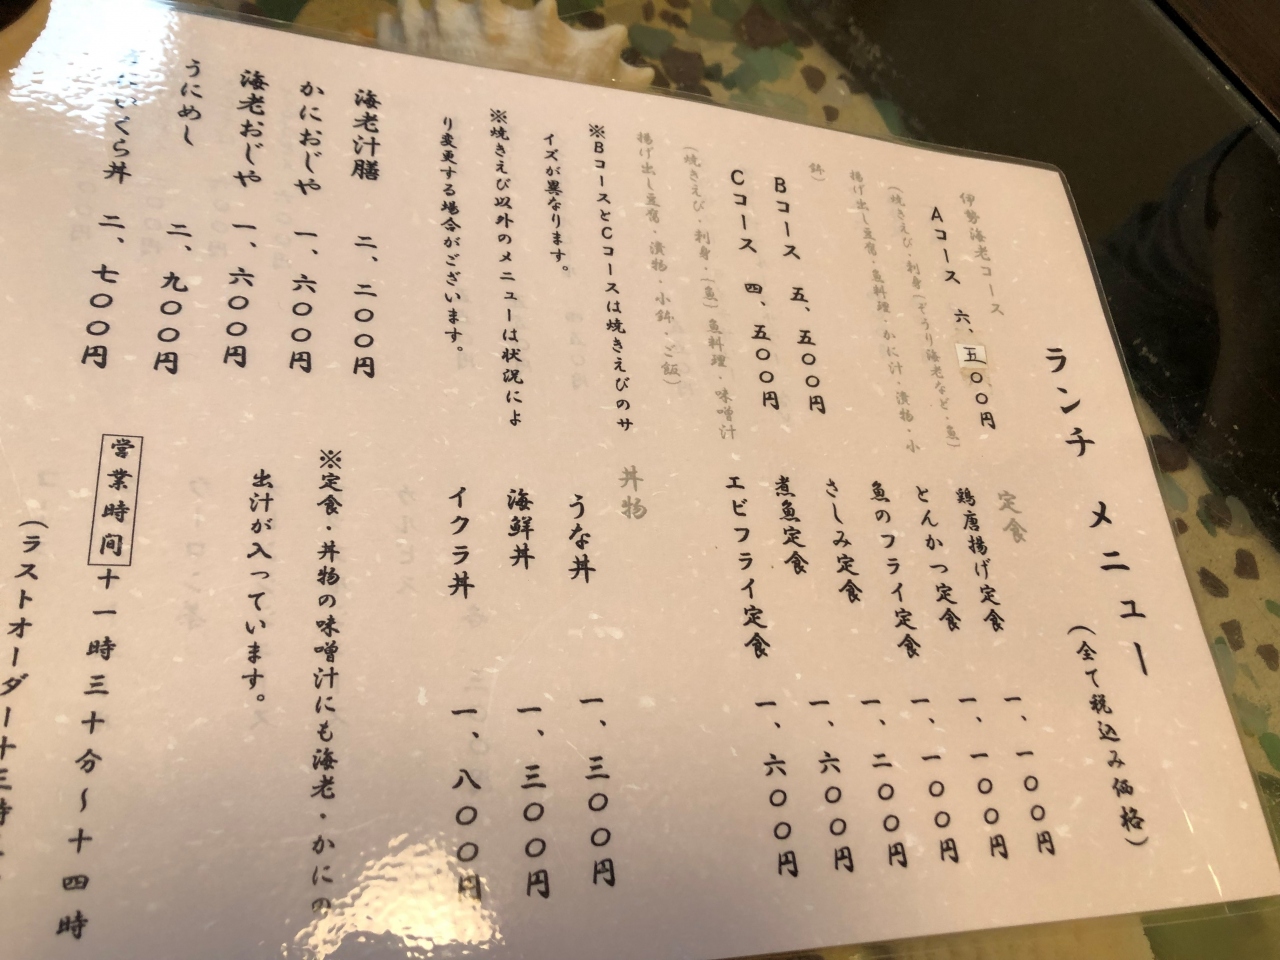 ランチ メニュー (全て税込み価格)
伊勢海老コース
Aコース 六、五〇〇円
(焼きえび・刺身(ぞうり海老など・魚)
揚げ出し豆腐・魚料理・かに汁・漬物・小
鉢)
Bコース 五、五〇〇円
Cコース 四、五〇〇円
(焼きえび・刺身・(魚)魚料理・味噌汁
揚げ出し豆腐・漬物・小鉢・ご飯)
※BコースとCコースは焼きえびのサ
イズが異なります。
※焼きえび以外のメニューは状況によ
り変更する場合がございます。
海老汁膳 二、二〇〇円
かにおじや 一、六〇〇円
海老おじや 一、六〇〇円
うにめし 二、九〇〇円
いくら丼 二、七〇〇円
定食
鶏唐揚げ定食 一、一〇〇円
とんかつ定食 一、一〇〇円
魚のフライ定食 一、一〇〇円
さしみ定食 一、二〇〇円
煮魚定食 一、六〇〇円
エビフライ定食 一、六〇〇円
丼物
うな丼 一、三〇〇円
海鮮丼 一、三〇〇円
イクラ丼 一、八〇〇円
※定食・丼物の味噌汁にも海老・かにの
出汁が入っています。
営業時間 十一時三十分～十四時
(ラストオーダー十三時